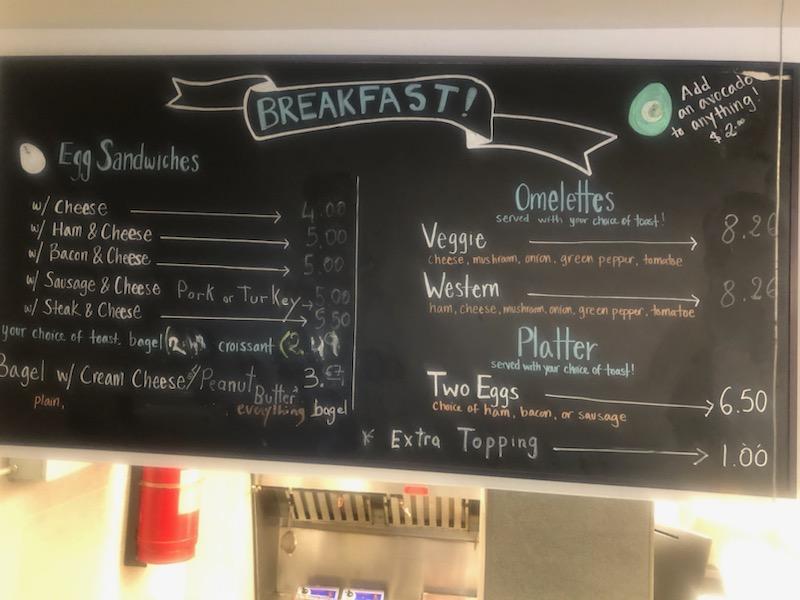 BREAKFAST!
Add
an avocado
to anything!
$2.00
Egg Sandwiches
w/ Cheese 4.00
w/ Ham & Cheese 5.00
w/ Bacon & Cheese 5.00
w/ Sausage & Cheese Pork or Turkey 5.00
w/ Steak & Cheese 5.50
your choice of toast. bagel (2.49 croissant (2.49
Bagel w/ Cream Cheese/Peanut Butter 3.67
plain, everything bagel
Omelettes
served with your choice of toast!
Veggie 8.26
cheese, mushroom, onion, green pepper, tomatoe
Western 8.26
ham, cheese, mushroom, onion, green pepper, tomatoe
Platter
served with your choice of toast!
Two Eggs 6.50
choice of ham, bacon, or sausage
* Extra Topping 1.00